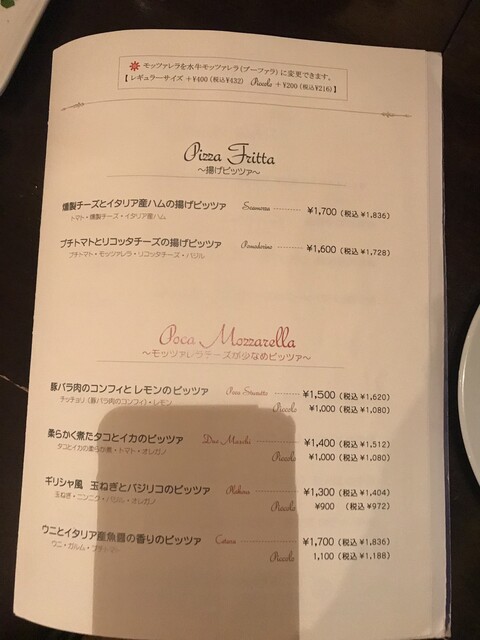 モッツァレラを水牛モッツァレラ(ブーファラ)に変更できます。
【 レギュラーサイズ +¥400 (税込¥432) Piccolo +¥200 (税込¥216) 】
Pizza Fritta
〜揚げピッツァ〜
燻製チーズとイタリア産ハムの揚げピッツァ Scamorza ¥1,700 (税込 ¥1,836)
トマト・燻製チーズ・イタリア産ハム
プチトマトとリコッタチーズの揚げピッツァ Pomodorino ¥1,600 (税込 ¥1,728)
プチトマト・モッツァレラ・リコッタチーズ・バジル
Poca Mozzarella
〜モッツァレラチーズが少なめピッツァ〜
豚バラ肉のコンフィと レモンのピッツァ ¥1,500 (税込 ¥1,620)
チッチョリ (豚バラ肉のコンフィ)・レモン Piccolo ¥1,000 (税込 ¥1,080)
柔らかく煮たタコとイカのピッツァ Due Maschi ¥1,400 (税込 ¥1,512)
タコとイカの柔らか煮・トマト・オレガノ Piccolo ¥1,000 (税込 ¥1,080)
ギリシャ風 玉ねぎとバジリコのピッツァ ¥1,300 (税込 ¥1,404)
玉ねぎ・ニンニク・バジル・オレガノ Piccolo ¥900 (税込 ¥972)
ウニとイタリア産魚醤の香りのピッツァ Cetara ¥1,700 (税込 ¥1,836)
ウニ・ガルム・プチトマト Piccolo 1,100 (税込 ¥1,188)